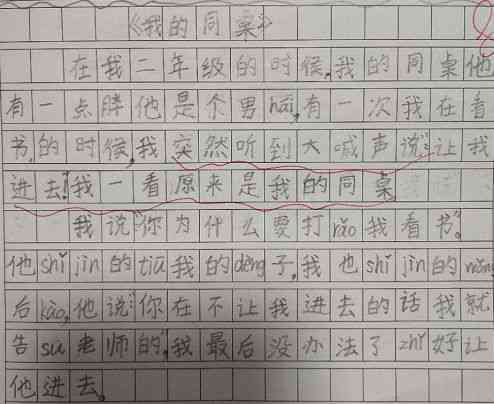 《我的同桌》
在我二年级的时候,我的同桌他
有一点胖他是个男hái,有一次我在看
书,的时候,我突然听到大喊声说:“让我
进去!”我一看原来是我的同桌
我说“你为什么要打rǎo我看书”。
他shǐ jìn的tiū我的dèng子,我也shǐ jìn的wǎng
后kào,他说“你在不让我进去的话我就
告su老师的”,我最后没办法了zhǐ好让
他进去。